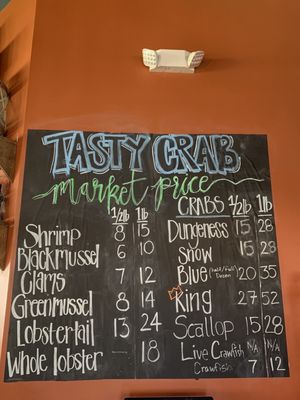 TASTY CRAB
market price
1/2lb 1lb
Shrimp 8 15
Black mussel 6 10
Clams 7 12
Greenmussel 8 14
Lobstertail 13 24
Whole lobster 18
CRABS 1/2lb 1lb
Dungeness 15 28
Snow 15 28
Blue (half/full) Dozen 20 35
King 27 52
Scallop 15 28
Live Crawfish N/A N/A
Crawfish 7 12